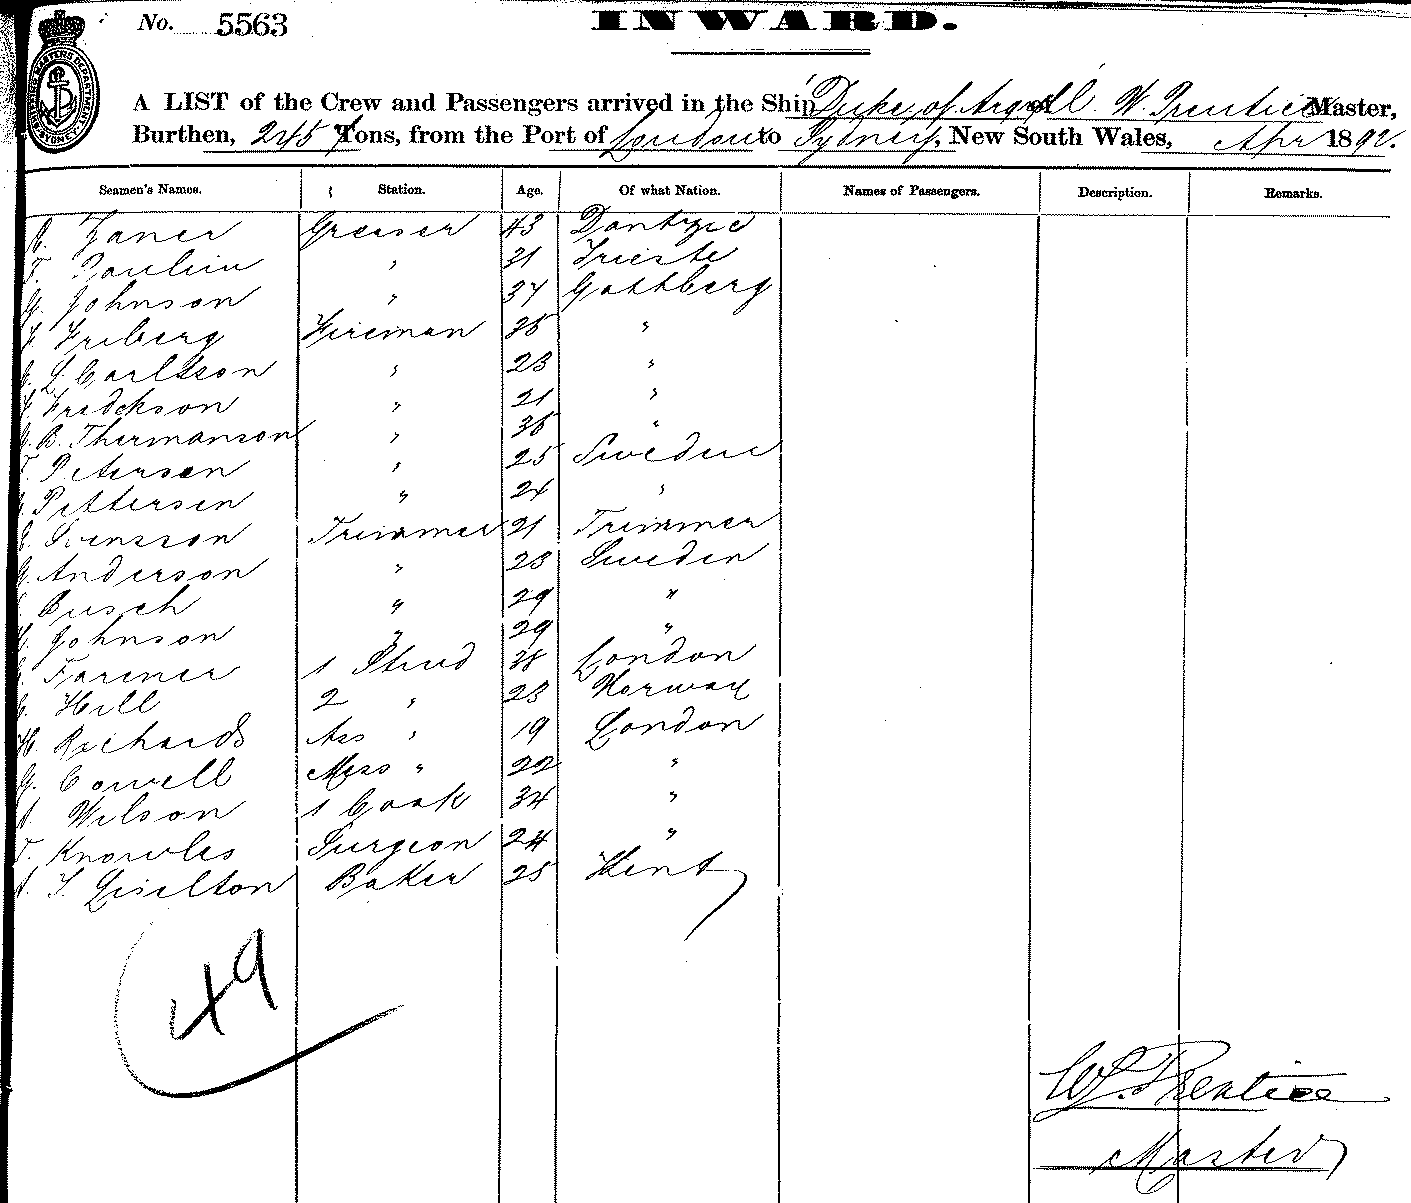 No. 5563
INWARD.
A LIST of the Crew and Passengers arrived in the Ship Duke of Argyll of W. Prentice Master,
Burthen, 2457 Tons, from the Port of London to Sydney, New South Wales, Apr 1892.
Seamen's Names. Station. Age. Of what Nation. Names of Passengers. Description. Remarks.
Zaner Greaser 43 Dantzic
F. Paulin " 31 Trieste
G. Johnson " 37 Gothberg
F. Friberg Fireman 36 "
L. Carlsson " 23 "
F. Fredckson " 21 "
B. Thermanson " 36 "
T. Peterson " 25 Sweden
Pettersen " 24 "
Svensson Trimmer 21 Trimmer
Anderson " 23 Sweden
Busch " 29 "
Johnson " 29 "
Farmer 1 Stwd 38 London
C. Hill 2 " 23 Norway
H. Richards Ass " 19 London
G. Cowell Mess " 22 "
Wilson 1 Cook 34 "
T. Knowles Surgeon 24 "
Giselton Baker 25 Kent
49
W. Prentice
Master